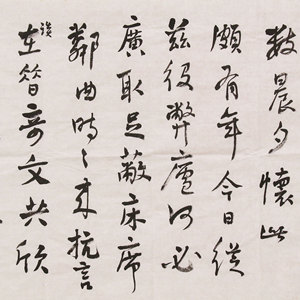 數晨夕懷此
頗有年今日從
茲役弊廬何必
廣取足蔽床席
鄰曲時〻來抗言
談在昔奇文共欣